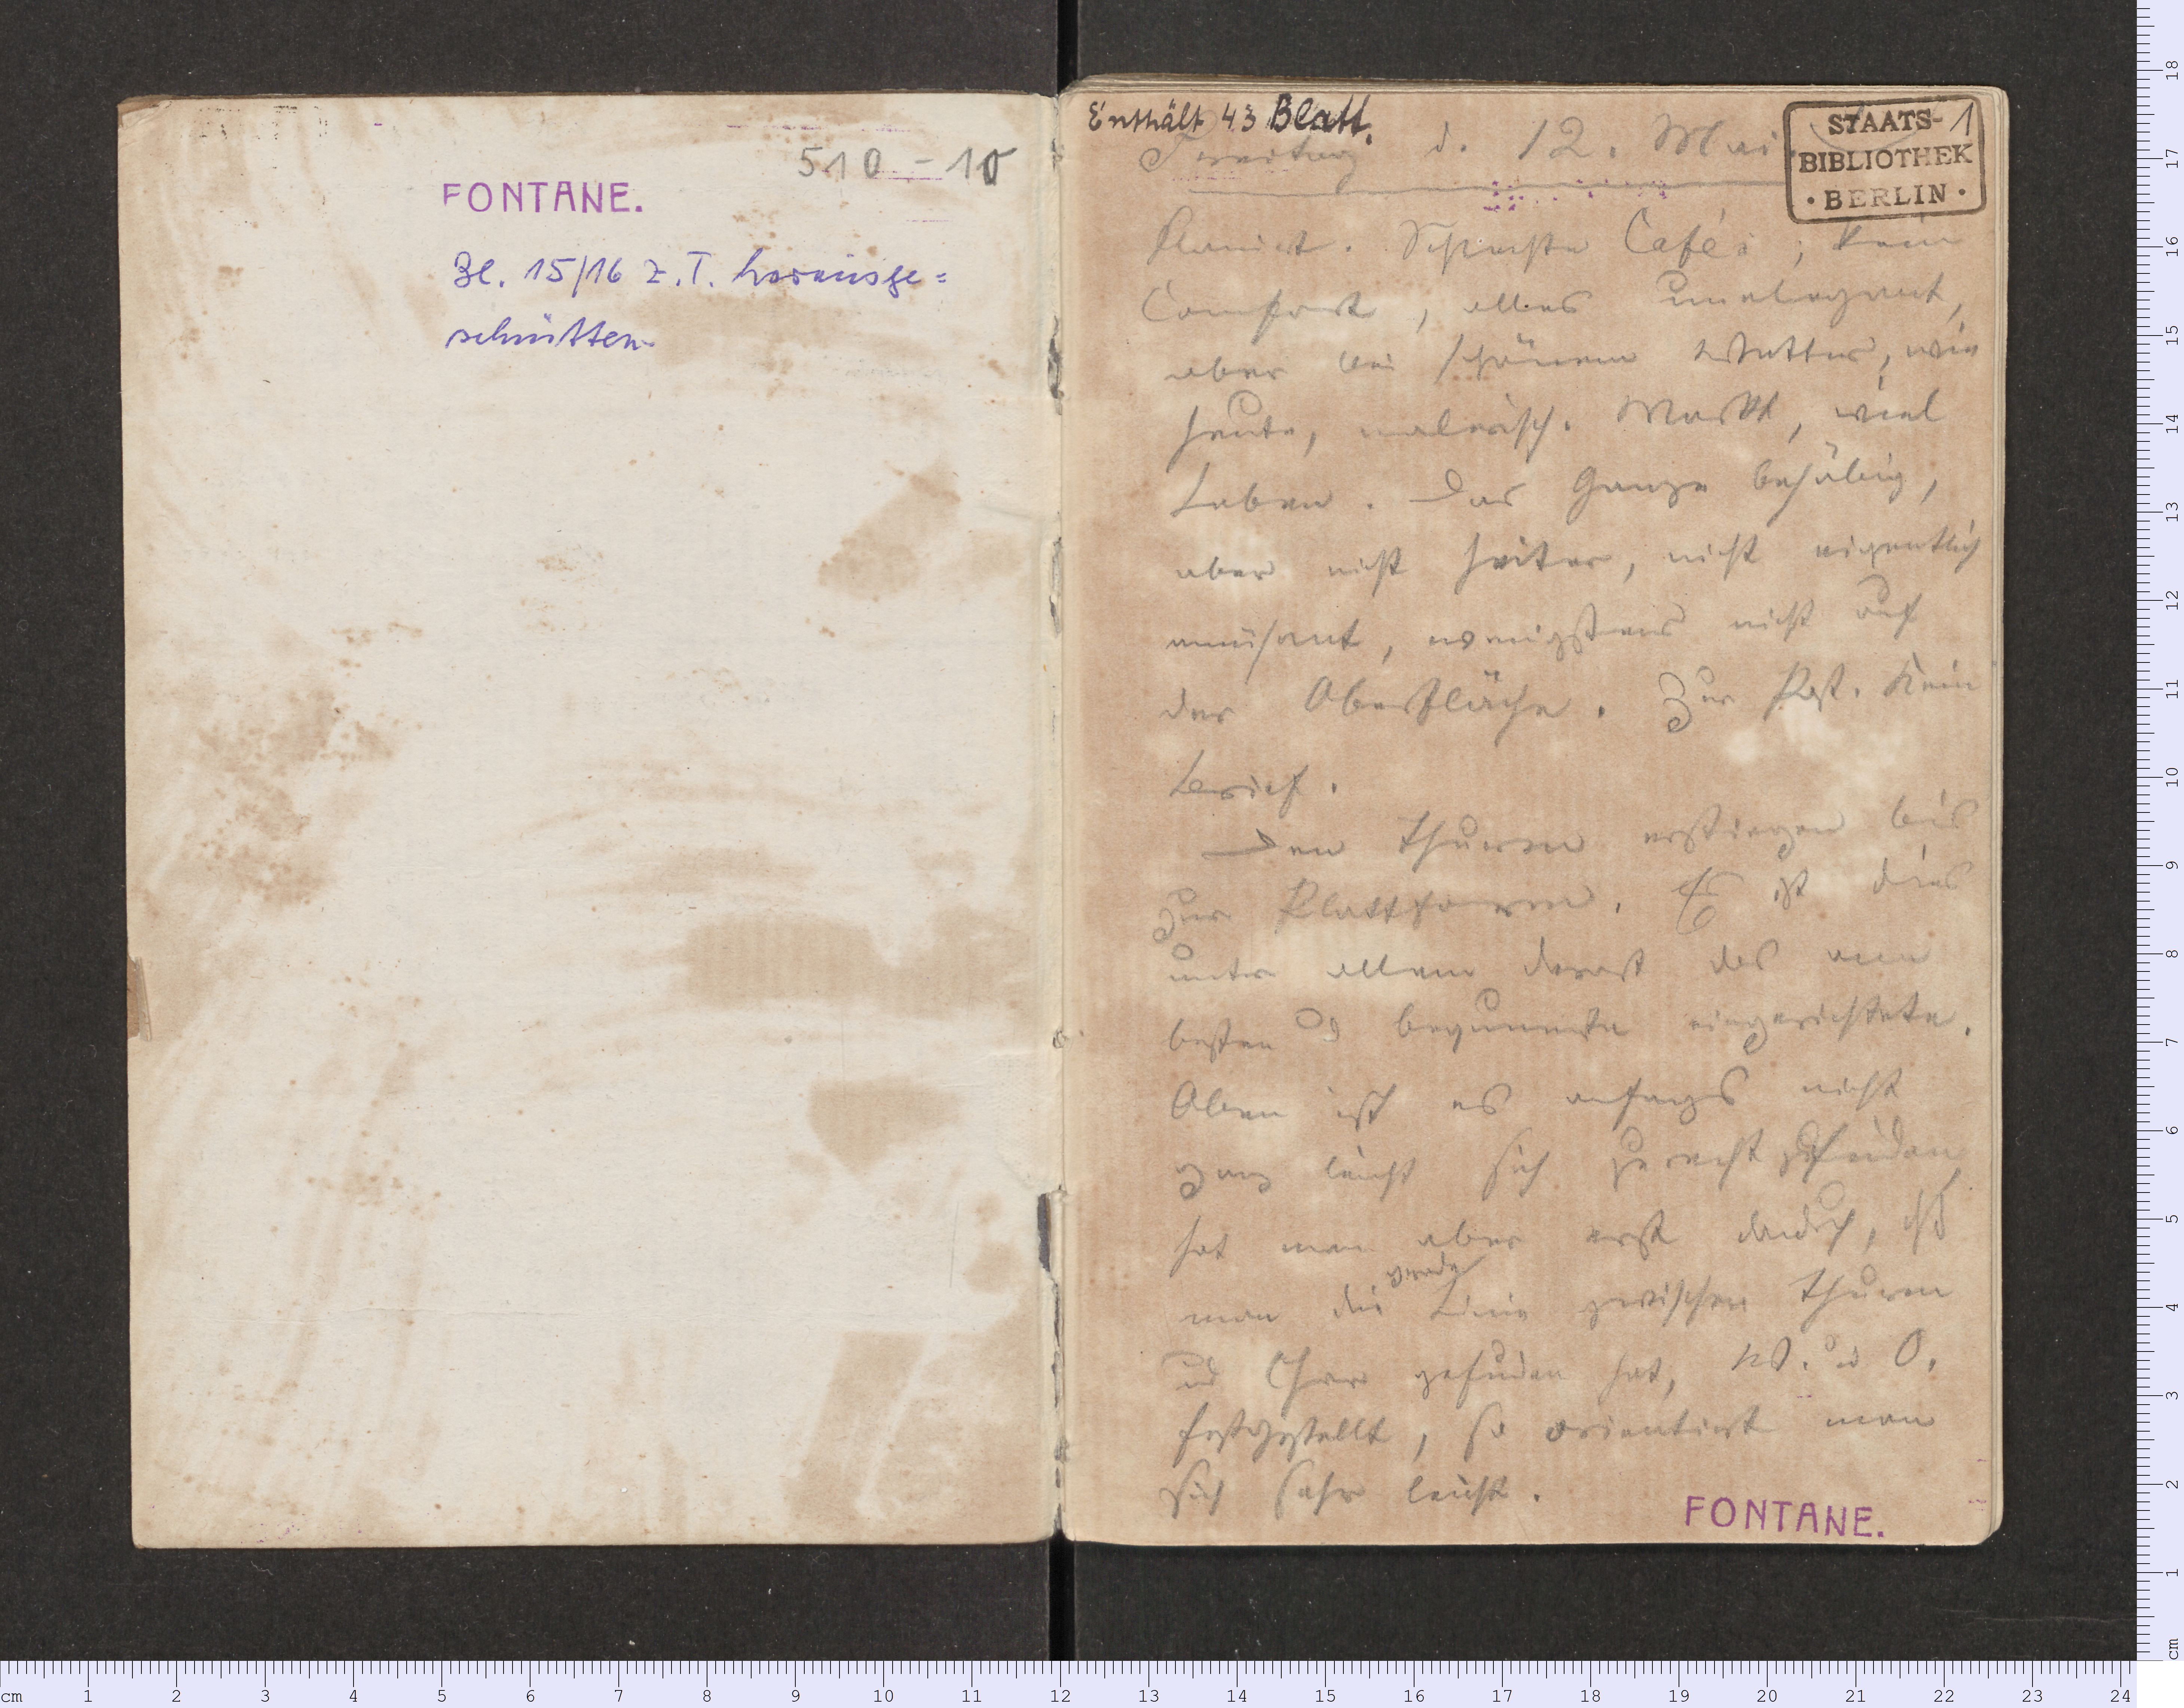 510 - 10
FONTANE.
Bl. 15/16 z. T. herausge=
schnitten
Enthält 43 Blatt.
STAATS-
BIBLIOTHEK
• BERLIN •
1
Freitag d. 12. Mai.
Flanirt. Schlechte Cafés; kein
Comfort, alles unelegant,
aber bei schönem Wetter, wie
heute, malerisch. Markt, viel
Leben. Das Ganze behäbig,
aber nicht heiter, nicht eigentlich
amüsant, wenigstens nicht auf
der Oberfläche. Zur Post. Kein
Brief.
Den Thurm erstiegen bis
zur Plattform. Es ist dies
unter allem derart das am
besten u bequemste eingerichtete.
Oben ist es anfangs nicht
ganz leicht sich zurecht zu finden,
hat man aber erst dadurch, dß
man die gerade Linie zwischen Thurm
und Chor gefunden hat, W. u O.
festgestellt, so orientirt man
sich sehr leicht.
FONTANE.